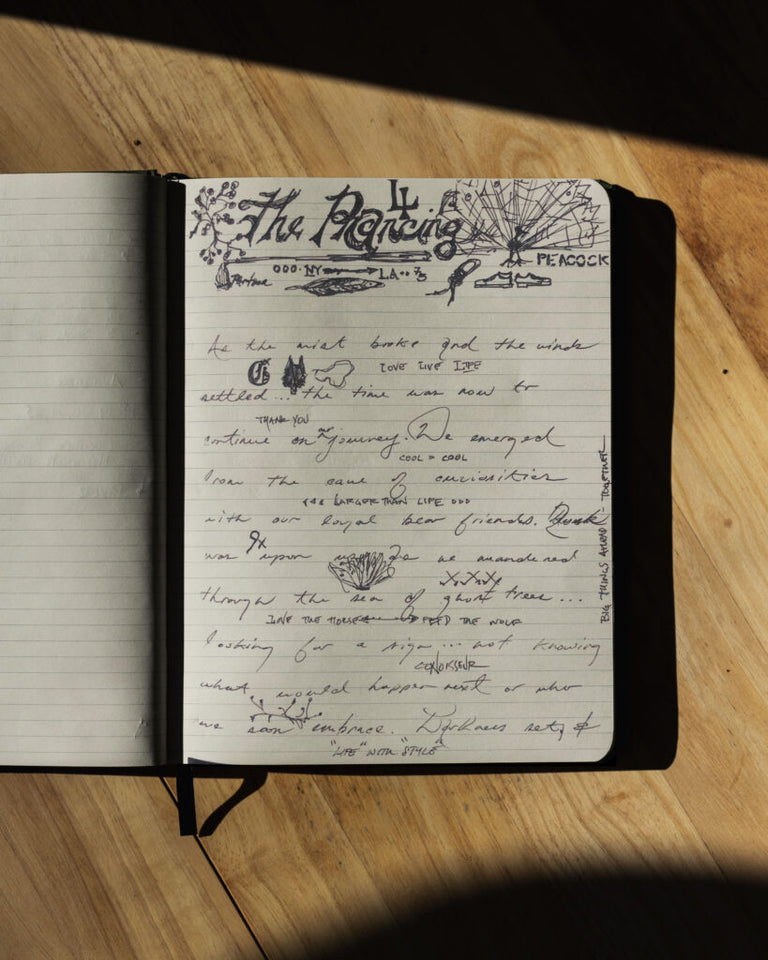 The Prancing
PEACOCK
NY LA
As the mist broke and the winds
LOVE LIVE LIFE
settled... the time was now to
THANK YOU
continue on our journey. We emerged
COOL = COOL
from the cave of curiosities
LARGER THAN LIFE
with our loyal bear friends. Dusk
was upon us as we meandered
XXXX
through the sea of ghost trees...
THE HORSE FEED THE WOLF
looking for a sign... not knowing
CONOISSEUR
what would happen next or who
we soon embrace. Darkness sets, &
"LIFE" WITH "STYLE"
BIG THINGS AHEAD - TOGETHER